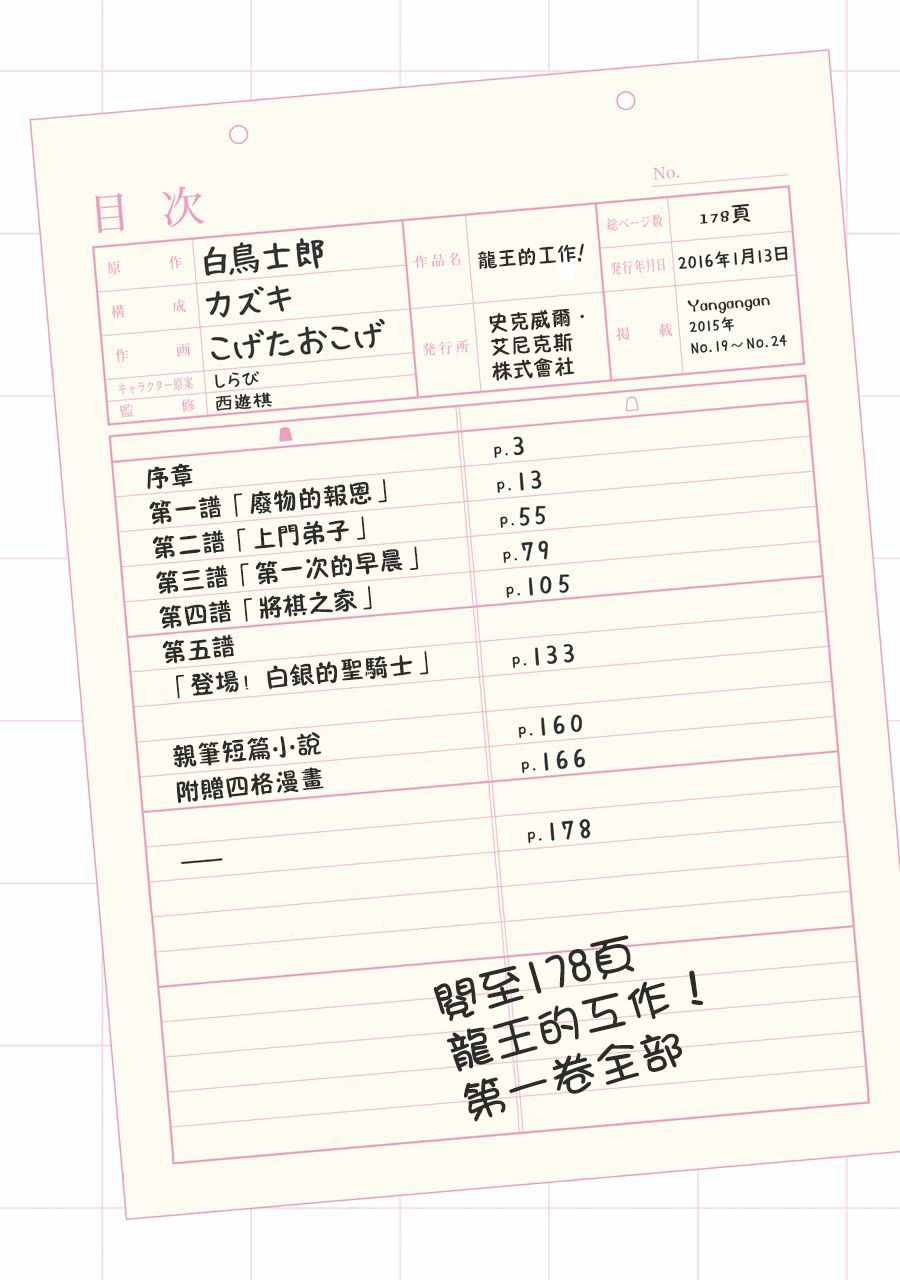 目 次
No.
原 作 白鳥士郎
構 成 カズキ
作 画 こげたおこげ
キャラクター原案 しらび
監 修 西遊棋
作品名 龍王的工作!
発行所 史克威爾・
艾尼克斯
株式會社
総ページ数 178頁
発行年月日 2016年1月13日
掲 載 Yangangan
2015年
No.19～No.24
序章 p.3
第一譜「廢物的報恩」 p.13
第二譜「上門弟子」 p.55
第三譜「第一次的早晨」 p.79
第四譜「將棋之家」 p.105
第五譜
「登場! 白銀的聖騎士」 p.133
親筆短篇小說 p.160
附贈四格漫畫 p.166
—— p.178
閱至178頁
龍王的工作!
第一卷全部